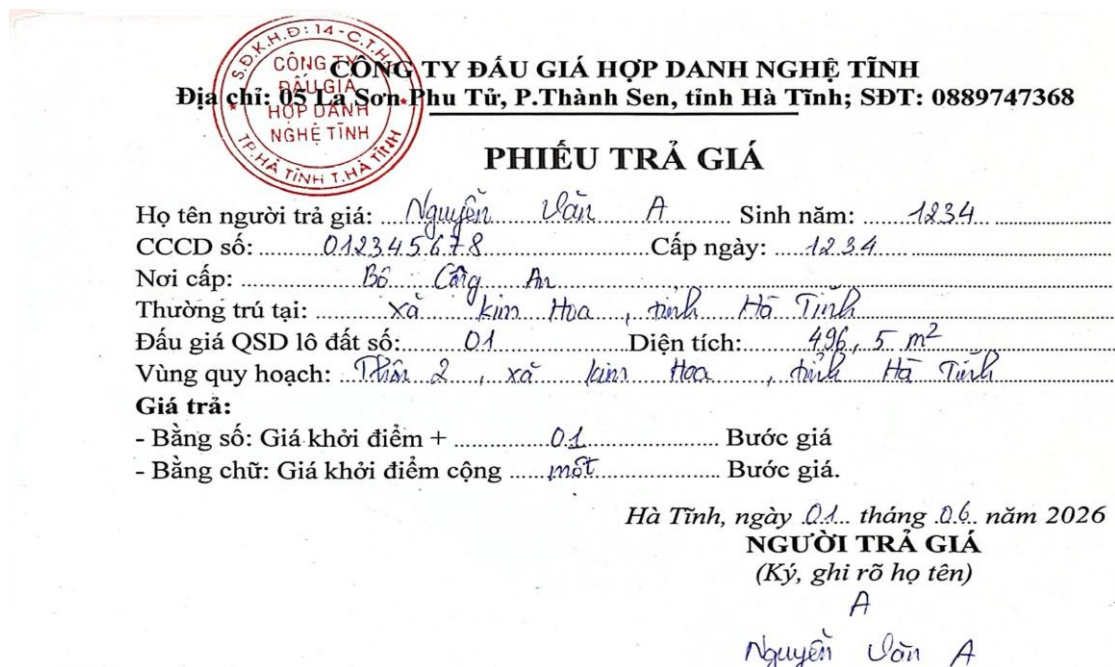 S.Đ.K.H.Đ: 14-C.T.H.D
CÔNG TY
ĐẤU GIÁ
HỢP DANH
NGHỆ TĨNH
TP.HÀ TĨNH T.HÀ TĨNH
CÔNG TY ĐẤU GIÁ HỢP DANH NGHỆ TĨNH
Địa chỉ: 05 La Sơn Phu Tử, P.Thành Sen, tỉnh Hà Tĩnh; SĐT: 0889747368
PHIẾU TRẢ GIÁ
Họ tên người trả giá: Nguyễn Văn A Sinh năm: 1234
CCCD số: 012345678 Cấp ngày: 1234
Nơi cấp: Bộ Công An
Thường trú tại: xã Kim Hoa, tỉnh Hà Tĩnh
Đấu giá QSD lô đất số: 01 Diện tích: 496,5 m²
Vùng quy hoạch: Thôn 2, xã Kim Hoa, tỉnh Hà Tĩnh
Giá trả:
- Bằng số: Giá khởi điểm + 01 Bước giá
- Bằng chữ: Giá khởi điểm cộng một Bước giá.
Hà Tĩnh, ngày 01 tháng 06 năm 2026
NGƯỜI TRẢ GIÁ
(Ký, ghi rõ họ tên)
A
Nguyễn Văn A